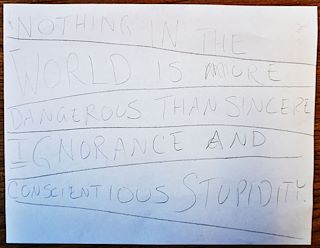 NOTHING IN THE
WORLD IS MORE
DANGEROUS THAN SINCERE
IGNORANCE AND
CONSCIENTIOUS STUPIDITY.